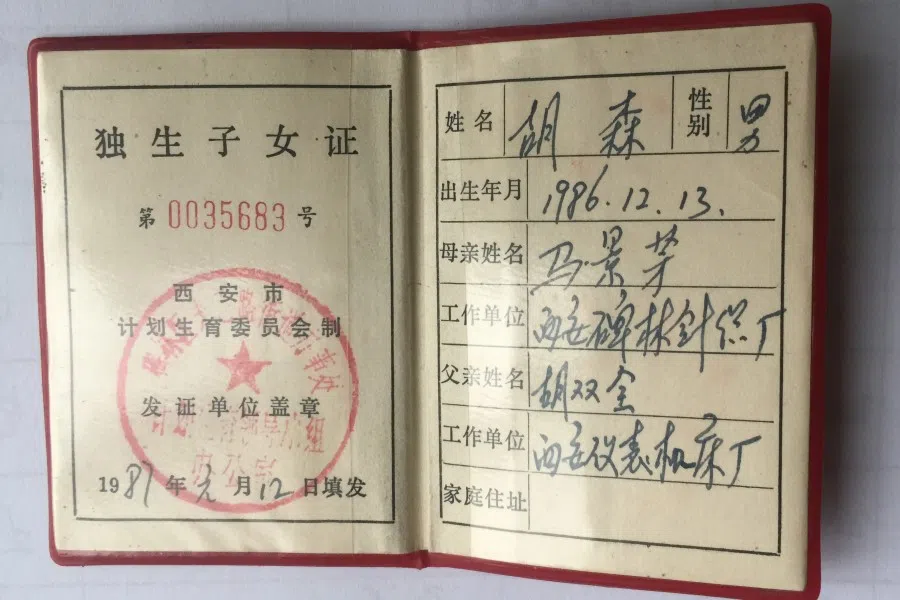 独生子女证
第0035683号
西安市
计划生育委员会制
发证单位盖章
1987年元月12日填发
姓名 胡森 性别 男
出生年月 1986.12.13.
母亲姓名 马景芳
工作单位 西安碑林针织厂
父亲姓名 胡双全
工作单位 西安仪表机床厂
家庭住址